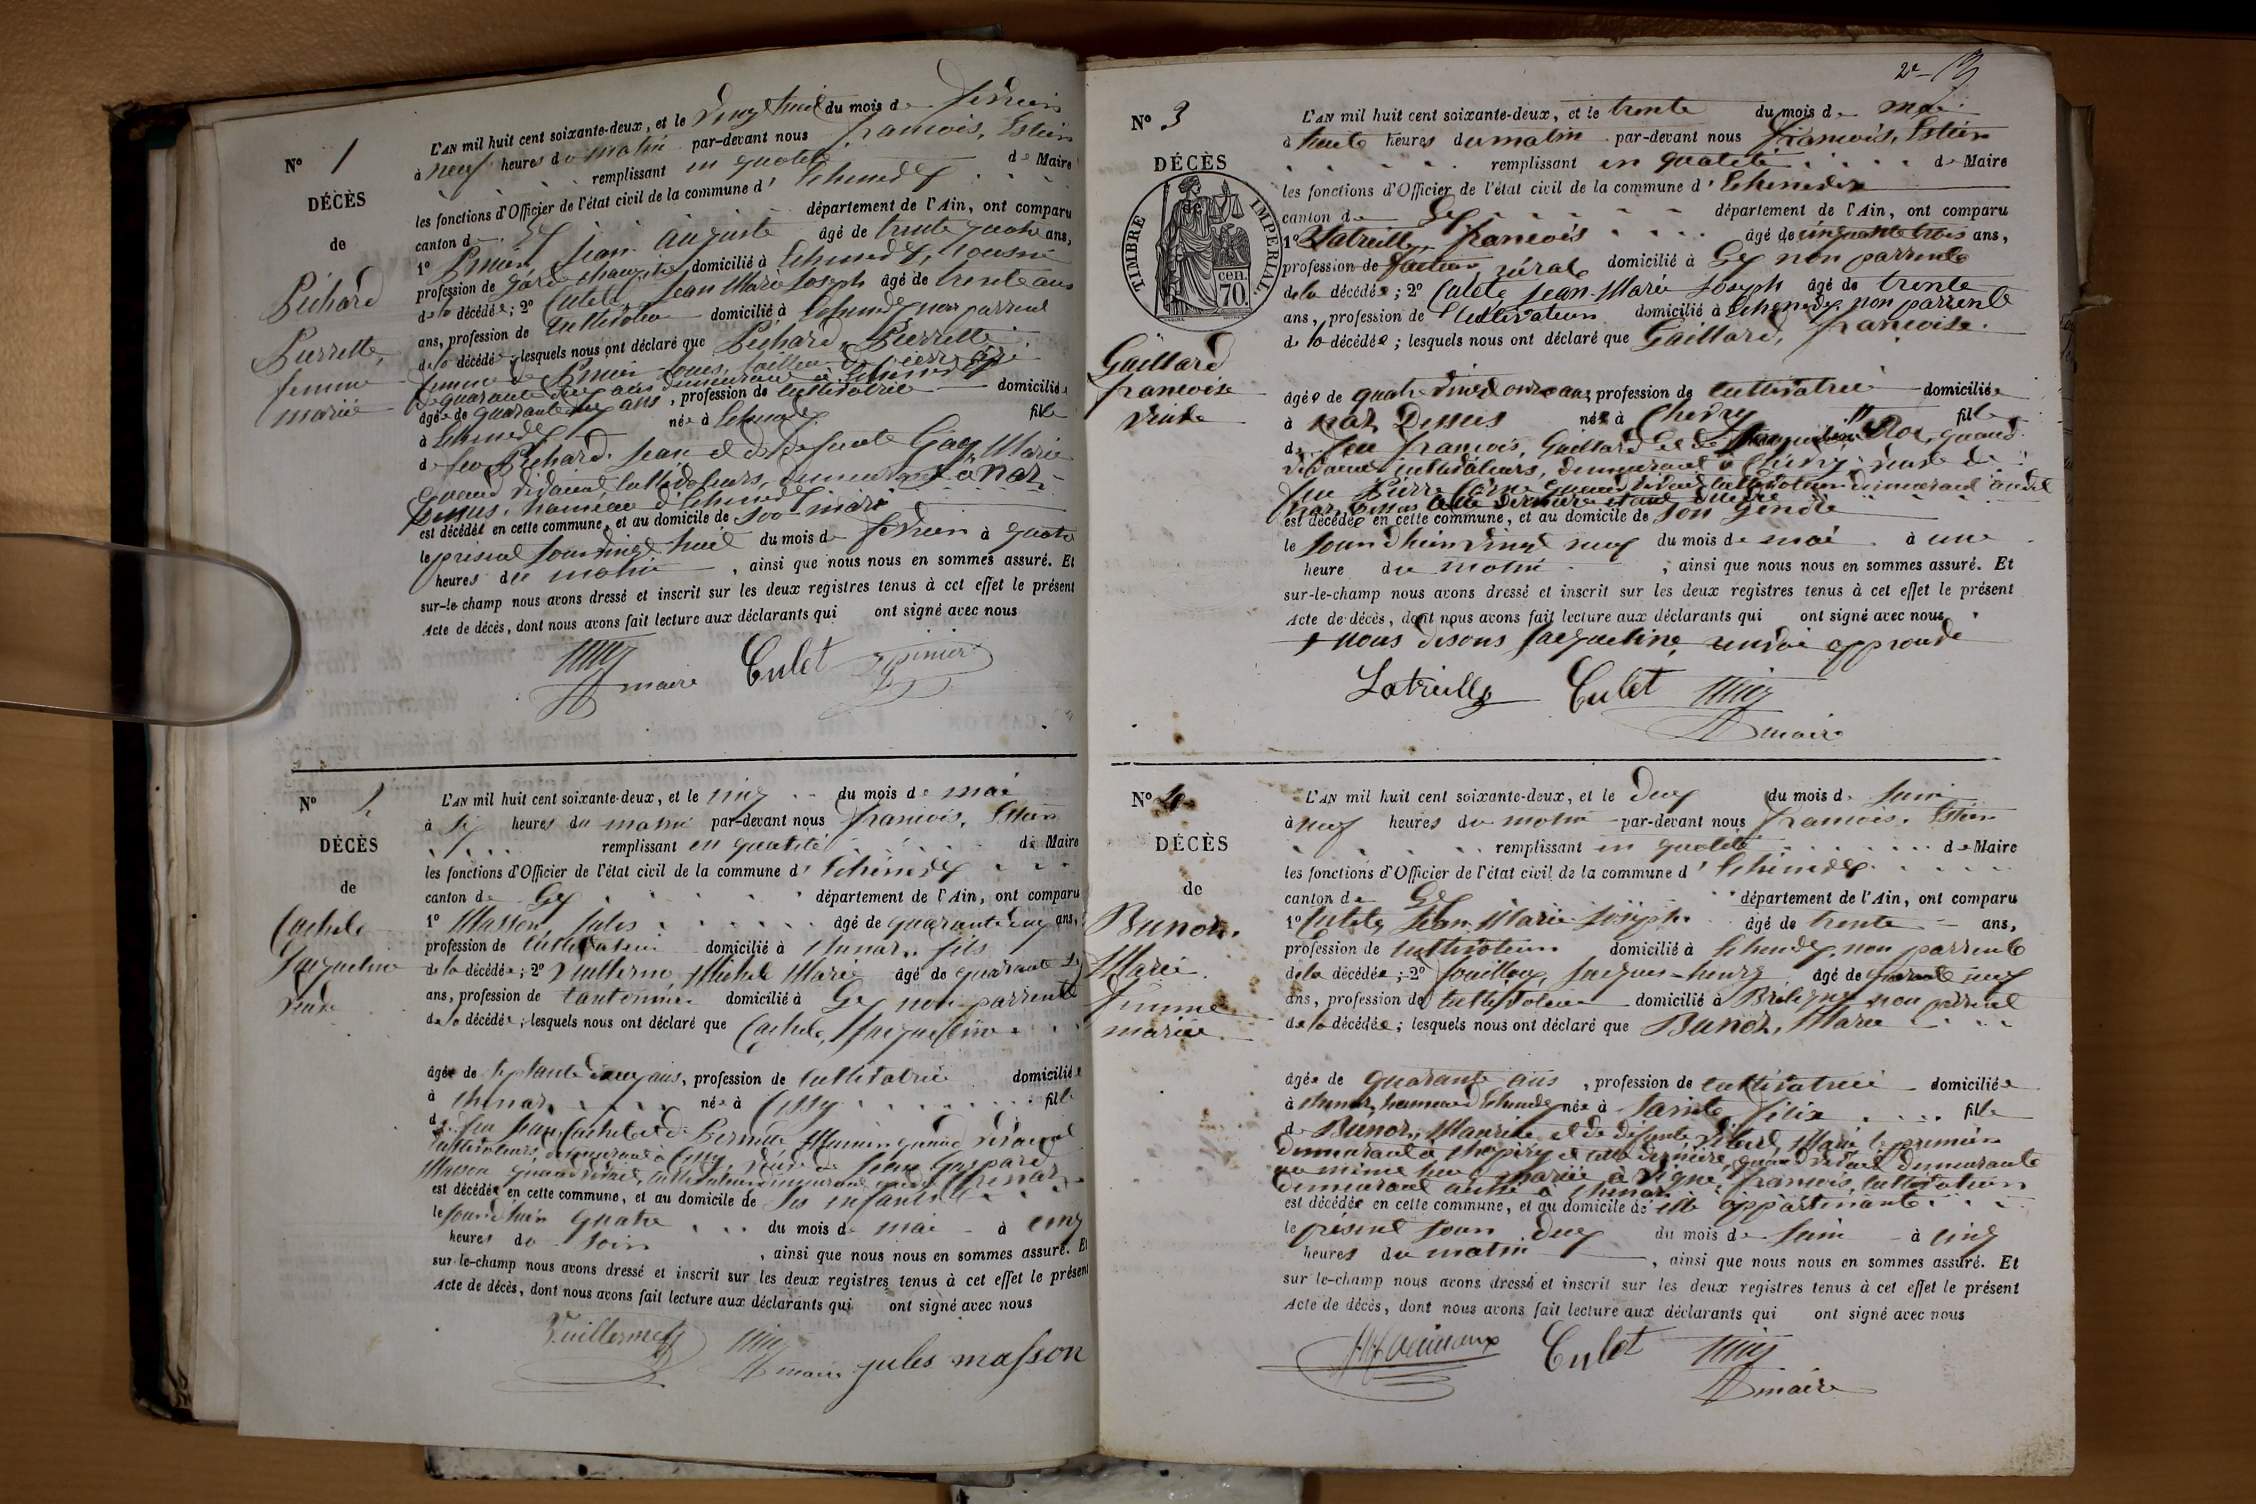 N° 1
DÉCÈS
de
Péchard
Pierrette,
femme
mariée
L'AN mil huit cent soixante-deux, et le vingt huit du mois de février
à neuf heures du matin par-devant nous françois, Estier
remplissant en qualité de Maire
les fonctions d'Officier de l'état civil de la commune d' Echenevex
canton de Gex département de l'Ain, ont comparu
1° Prinier Jean Auguste âgé de trente quatre ans,
profession de garde champêtre domicilié à Echenevex, cousin
de la décédée; 2° Culet, Jean Marie Joseph âgé de trente ans
ans, profession de cultivateur domicilié à Echenevex non parrent
de la décédée; lesquels nous ont déclaré que Péchard, Pierrette
âgée de quarante ans, profession de cultivatrice domiciliée
à Echenevex née à Echenevex fille
de feu Péchard, Jean et de défunte Marie
quand vivaient cultivateurs, demeurant à Naz-
Dessus, hameau d'Echenevex
est décédée en cette commune, et au domicile de son mari
le présent jour vingt huit du mois de février à quatre
heures du matin, ainsi que nous nous en sommes assuré. Et
sur-le-champ nous avons dressé et inscrit sur les deux registres tenus à cet effet le présent
Acte de décès, dont nous avons fait lecture aux déclarants qui ont signé avec nous
maire Culet
N° 2
DÉCÈS
de
Cachele
Jacqueline
veuve
L'AN mil huit cent soixante-deux, et le cinq du mois de mai
à six heures du matin par-devant nous françois, Estier
remplissant en qualité de Maire
les fonctions d'Officier de l'état civil de la commune d' Echenevex
canton de Gex département de l'Ain, ont comparu
1° Masson, Jules âgé de quarante ans,
profession de cultivateur domicilié à Chenaz, fils
de la décédée; 2° Vuillerme, Michel Marie âgé de quarante
ans, profession de cantonnier domicilié à Gex non parrent
de la décédée; lesquels nous ont déclaré que Cachele, Jacqueline
âgée de septante ans, profession de cultivatrice domiciliée
à Chenaz née à Cessy fille
de feu Jean Cachele et de quand vivaient
cultivateurs, demeurant à Cessy, veuve de Jean Gaspard
Masson quand vivait, cultivateur demeurant Chenaz
est décédée en cette commune, et au domicile de ses enfants
le jour d'hier quatre du mois de mai à cinq
heures du soir, ainsi que nous nous en sommes assuré. Et
sur-le-champ nous avons dressé et inscrit sur les deux registres tenus à cet effet le présent
Acte de décès, dont nous avons fait lecture aux déclarants qui ont signé avec nous
maire jules masson
2e
N° 3
DÉCÈS
de
TIMBRE IMPÉRIAL
70 cen.
Gaillard
françoise
veuve
L'AN mil huit cent soixante-deux, et le trente du mois de mai
à heures du matin par-devant nous françois, Estier
remplissant en qualité de Maire
les fonctions d'Officier de l'état civil de la commune d' Echenevex
canton de Gex département de l'Ain, ont comparu
1° Latreille, françois âgé de cinquante trois ans,
profession de facteur rural domicilié à Gex non parrente
de la décédée; 2° Culet, Jean-Marie Joseph âgé de trente
ans, profession de Cultivateur domicilié à Echenevex non parrente
de la décédée; lesquels nous ont déclaré que Gaillard, françoise.
âgée de quatre vingt onze ans profession de cultivatrice domiciliée
à Naz Dessus née à Chevry fille
de feu françois, Gaillard et de Roz, quand
vivaient cultivateurs, demeurant à Chevry veuve de
feu Pierre quand vivait cultivateur demeurant
Naz Dessus cette dernière étant
est décédée en cette commune, et au domicile de son gendre
le jour d'hier vingt neuf du mois de mai à une
heure du matin, ainsi que nous nous en sommes assuré. Et
sur-le-champ nous avons dressé et inscrit sur les deux registres tenus à cet effet le présent
Acte de décès, dont nous avons fait lecture aux déclarants qui ont signé avec nous
+ nous disons Jacqueline, renvoi approuvé
Latreille Culet
maire
N° 4
DÉCÈS
de
Bunoz,
Marie
femme
mariée
L'AN mil huit cent soixante-deux, et le deux du mois de Juin
à neuf heures du matin par-devant nous françois, Estier
remplissant en qualité de Maire
les fonctions d'Officier de l'état civil de la commune d' Echenevex
canton de Gex département de l'Ain, ont comparu
1° Culet, Jean Marie Joseph âgé de trente ans,
profession de cultivateur domicilié à Echenevex, non parrente
de la décédée; 2° Jacques-henry âgé de quarante neuf
ans, profession de cultivateur domicilié à Brétigny non parrent
de la décédée; lesquels nous ont déclaré que Bunoz, Marie
âgée de quarante ans, profession de cultivatrice domiciliée
à Chenaz, hameau d'Echenevex née à Sainte Félix fille
de Bunoz, Maurice et de défunte Marie le premier
demeurant à et cette dernière, quand vivait demeurante
au même lieu, mariée à Vigne, françois, cultivateur
demeurant aussi à Chenaz
est décédée en cette commune, et au domicile de elle appartenante
le présent jour deux du mois de Juin à cinq
heures du matin, ainsi que nous nous en sommes assuré. Et
sur le-champ nous avons dressé et inscrit sur les deux registres tenus à cet effet le présent
Acte de décès, dont nous avons fait lecture aux déclarants qui ont signé avec nous
Culet
maire